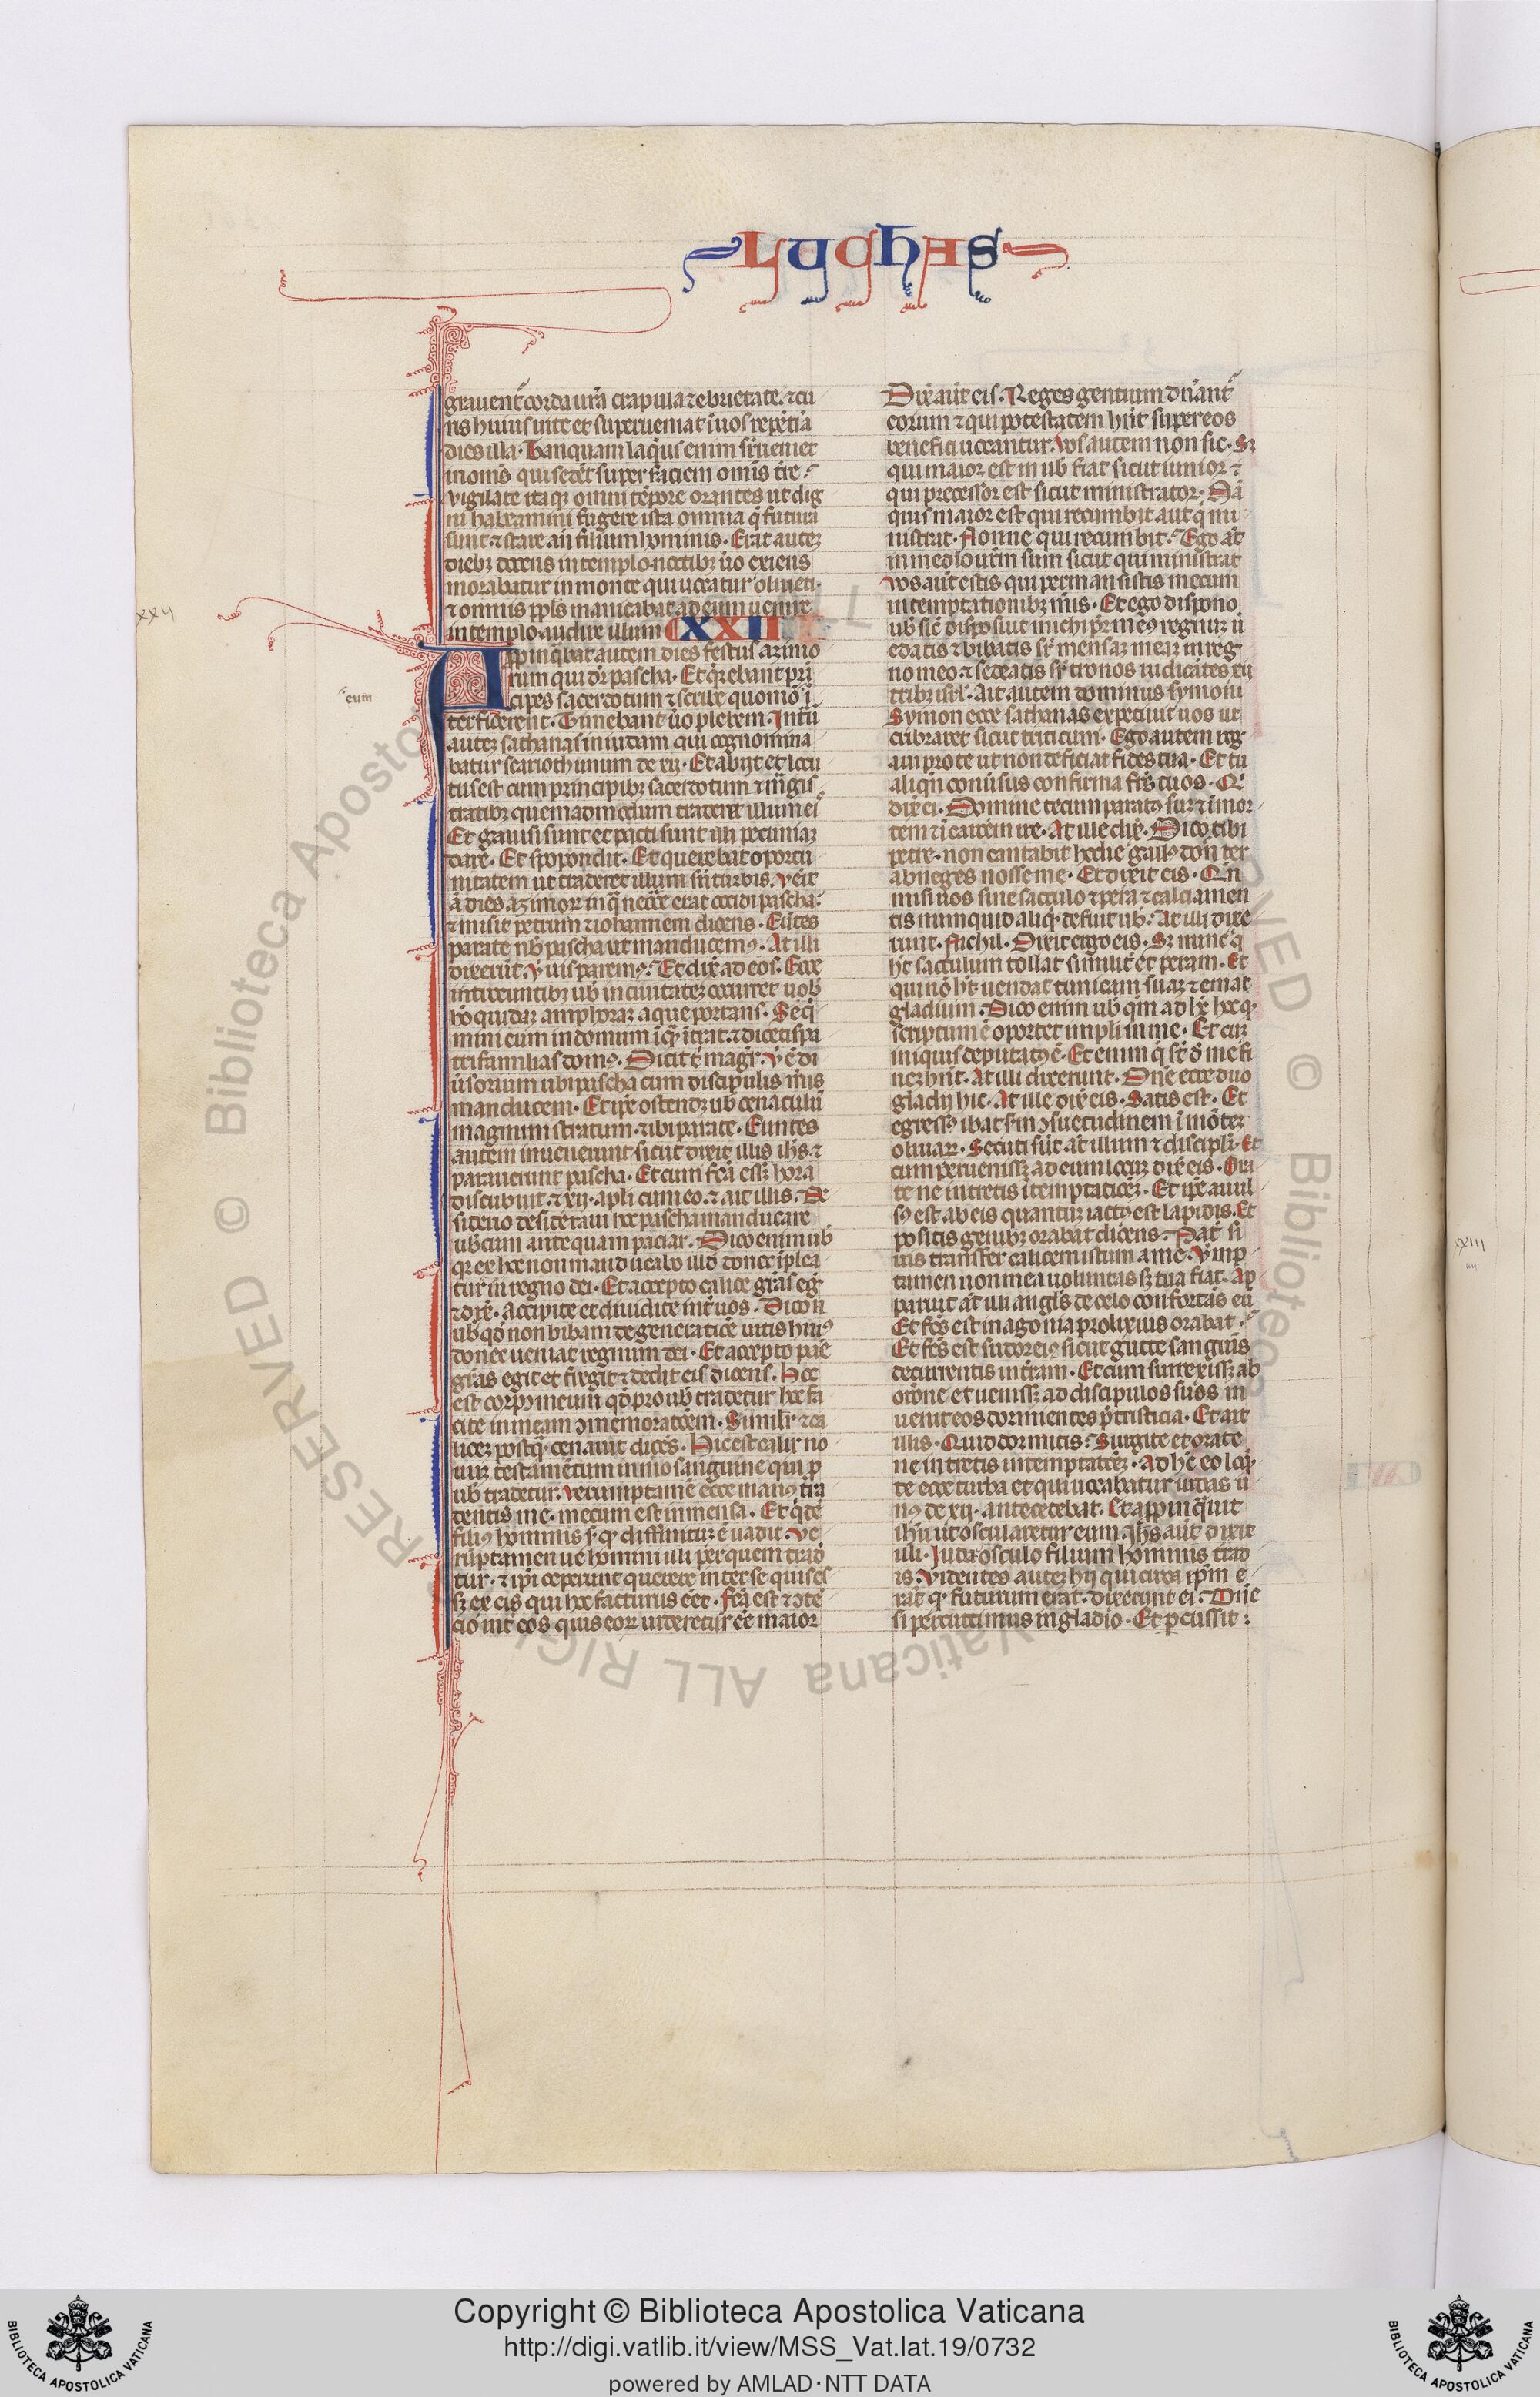 LUCHAS
grauent᷑ corda ura᷑ crapula ⁊ ebrietate. ⁊ cu
ris huius uite et superueniat i᷑ uos repe᷑tia᷑
dies illa. Tanquam laq᷑us enim sr᷑ueniet
in omnis qui sede᷑t super faciem omi᷑s tre᷑
vigilate itaqꝫ omni te᷑pore orantes ut dig
ni habeamini fugere ista omnia q᷑ futura
sunt. ⁊ stare an᷑ filium hominis. Erat autеꝫ
diebꝫ docens in templo. noctibꝫ u᷑o exiens
morabatur in monte qui uocatur oliueti.
⁊ omnis ppl᷑s manicabat ad eum uenire
in templo. audire illum XXII
xxij
Appinq᷑bat autem dies festus azimo
rum qui dr᷑ pascha. Et q᷑rebant pri᷑
cipes sacerdotum ⁊ scribe quomo᷑ i᷑
eum
terficerent. Timebant u᷑o plebem. Intͣu᷑
auteꝫ sathanas in iudam qui cognomina
batur scarioth unum de xij. Et abijt et locu
tus est cum principibꝫ sacerdotum ⁊ m᷑gis
tratibꝫ quemadmodum traderet illum ei᷑
Et gauisi sunt et pacti sunt illi pecuniaꝫ
dare. Et spopondit. Et querebat oportu
nitatem ut traderet illum sn᷑ turbis. Ve᷑it
a᷑ dies azimoꝝ in q᷑ necce᷑ erat occidi pascha.
⁊ misit petrum ⁊ iohannem dicens. Eu᷑tes
parate nb᷑ pascha ut manducemꝰ. At illi
dixeru᷑t. V᷑ uis paremꝰ. Et dix᷑ ad eos. Ecce
introeuntibꝫ ub᷑ in ciuitateꝫ occurret uob᷑
ho᷑ quidaꝫ amphoraꝫ aque portans. Seq᷑
mini eum in domum i᷑ qꝫ i᷑trat. ⁊ dicetis pa
trifamilias domꝰ. Dicit t᷑ mag᷑r. V᷑ e᷑ di
u᷑sorium ubi pascha cum discipulis m᷑is
manducem. Et ip᷑e ostendꝫ ub᷑ cenaculu᷑
magnum stratum. ⁊ ibi parate. Euntes
autem inuenerunt sicut dixit illis ih᷑s. ⁊
parauerunt pascha. Et cum fca᷑ e᷑ssꝫ hora
discubuit. ⁊ xij. apl᷑i cum eo. ⁊ ait illis. De
siderio desideraui hoc pascha manducare
ub᷑cum antequam paciar. Dico enim ub᷑
qꝫ ex hoc non manducabo illd᷑ donec i᷑plea
tur in regno dei. Et accepto calice gr᷑as eg᷑
⁊ dix᷑. Accipite et diuidite int᷑ uos. Dico n᷑
ub᷑ qd᷑ non bibam de generatioe᷑ uitis huiꝰ
donec ueniat regnum dei. Et accepto pae᷑
gr᷑as egit et fregit ⁊ dedit eis dicens. Hoc
est corpꝰ meum qd᷑ pro ub᷑ tradetur. hoc fa
cite in meam ↄmemoratoe᷑m. Simili᷑r ⁊ ca
liceꝫ postqꝫ cenauit dice᷑s. Hic est calix no
uuꝫ testame᷑tum in m᷑o sanguine qui p
ub᷑ tradetur. Verumptame᷑ ecce manꝰ tra
dentis me. mecum est in mensa. Et q᷑de᷑
filiꝰ hominis s. qꝫ diffinitum e᷑ uadit. Ve
ru᷑ptamen ue homini illi per quem trad
tur. ⁊ ipi᷑ ceperunt querere inter se quis es
sꝫ ex eis qui hoc facturus e᷑et. Fca᷑ est ⁊ ↄte᷑
cio int᷑ eos quis eoꝝ uideretur e᷑e maior
Dix᷑ aut᷑ eis. Reges gentium dn᷑ant᷑
eorum ⁊ qui potestatem hn᷑t super eos
benefici uocantur. Vos autem non sic. Sꝫ
qui maior est in ub᷑ fiat sicut iunior ⁊
qui precessor est sicut ministrator. Na᷑
quis maior est qui recumbit aut q᷑ mi
nistrat. Nonne qui recumbit. Ego at᷑
in medio ur᷑m sum sicut qui ministrat
Vos aut᷑ estis qui permansistis mecum
in temptationibꝫ m᷑is. Et ego dispono
ub᷑ sic᷑ disposuit michi pr᷑ meꝰ regnuꝫ u᷑
edatis ⁊ bibatis sr᷑ mensaꝫ meaꝫ in reg
no meo. ⁊ sedeatis sr᷑ tronos iudica᷑tes xij
tribꝫ isrl᷑. Ait autem dominus symoni
Symon ecce sathanas expetiuit uos ut
cribraret sicut triticum. Ego autem rog
aui pro te ut non deficiat fides tua. Et tu
aliqn᷑ conu᷑sus confirma fr᷑s tuos. Q᷑
dix᷑ ei. Domine tecum paratꝰ suꝫ ⁊ i᷑ mor
tem ⁊ i᷑ carce᷑m ire. At ille dix᷑. Dico tibi
petre. non cantabit hodie gallꝰ don᷑ ter
abneges nosse me. Et dixit eis. Qn᷑
misi uos sine sacculo ⁊ pera ⁊ calciamen
tis numquid aliqꝫ defuit ub᷑. At illi dixe
runt. Nichil. Dixit ergo eis. Sꝫ nunc q᷑
ht᷑ sacculum tollat similit᷑ et peram. Et
qui no᷑ ht᷑ uendat tunicam suaꝫ ⁊ emat
gladium. Dico enim ub᷑ qm᷑ adhᷓ hoc qꝫ
scriptum e᷑ oportet impli᷑ in me. Et cuꝫ
iniquis deputatꝰ e᷑. Et enim q᷑ st᷑ d᷑ me fi
neꝫ hn᷑t. At illi dixerunt. Dn᷑e ecce duo
gladij hic. At ille dix᷑ eis. Satis est. Et
egressꝰ ibat s᷑m ↄsuetudinem i᷑ mo᷑teꝫ
oliuaꝝ. Secuti su᷑t at᷑ illum ⁊ discipli᷑. Et
cum peruenissꝫ ad eum locuꝫ dix᷑ eis. Ora
te ne intretis i᷑ temptatioeꝫ. Et ip᷑e auul
sꝰ est ab eis quantuꝫ iactꝰ est lapidis. Et
positis genibꝫ orabat dicens. Pat᷑ si
uis transfer calicem istum a me. V᷑mp
tamen non mea uoluntas sꝫ tua fiat. Ap
paruit at᷑ illi angl᷑s de celo conforta᷑s eu᷑
Et fc᷑s est in agonia prolixius orabat.
Et fc᷑s est sudor eiꝰ sicut gutte sangui᷑s
decurrentis in t᷑ram. Et cum surrexissꝫ ab
oro᷑ne et uenissꝫ ad discipulos suos in
uenit eos dormientes p᷑ tristicia. Et ait
illis. Quid dormitis. Surgite et orate
ne intretis in temptatoeꝫ. Adhc᷑ eo loq᷑
te ecce turba et qui uocabatur iudas u
nꝰ de xij. antecedebat. Et appinq᷑uit
ih᷑u ut oscularetur eum. Ih᷑s aut᷑ dixit
illi. Iuda osculo filium hominis trad
is. Videntes auteꝫ hij qui circa ip᷑m e
rat᷑ qꝫ futurum erat. dixerunt ei. Dn᷑e
si percutimus in gladio. Et p cussit:
xxiij
Copyright © Biblioteca Apostolica Vaticana
http://digi.vatlib.it/view/MSS_Vat.lat.19/0732
powered by AMLAD·NTT DATA
BIBLIOTECA APOSTOLICA VATICANA
BIBLIOTECA APOSTOLICA VATICANA